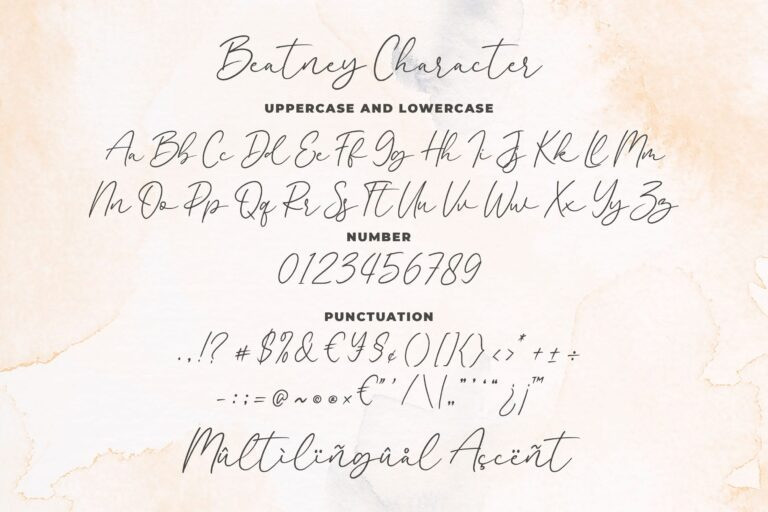 Beatney Character
UPPERCASE AND LOWERCASE
Aa Bb Cc Dd Ee Ff Gg Hh Ii Jj Kk Ll Mm
Nn Oo Pp Qq Rr Ss Tt Uu Vv Ww Xx Yy Zz
NUMBER
0123456789
PUNCTUATION
.,!? # $%& €¥§¢ () [] {} <>* +±÷
-:;=@~©®×€"'/\|„"''"¿¡™
Mûltìlïñgûål Asçëñt